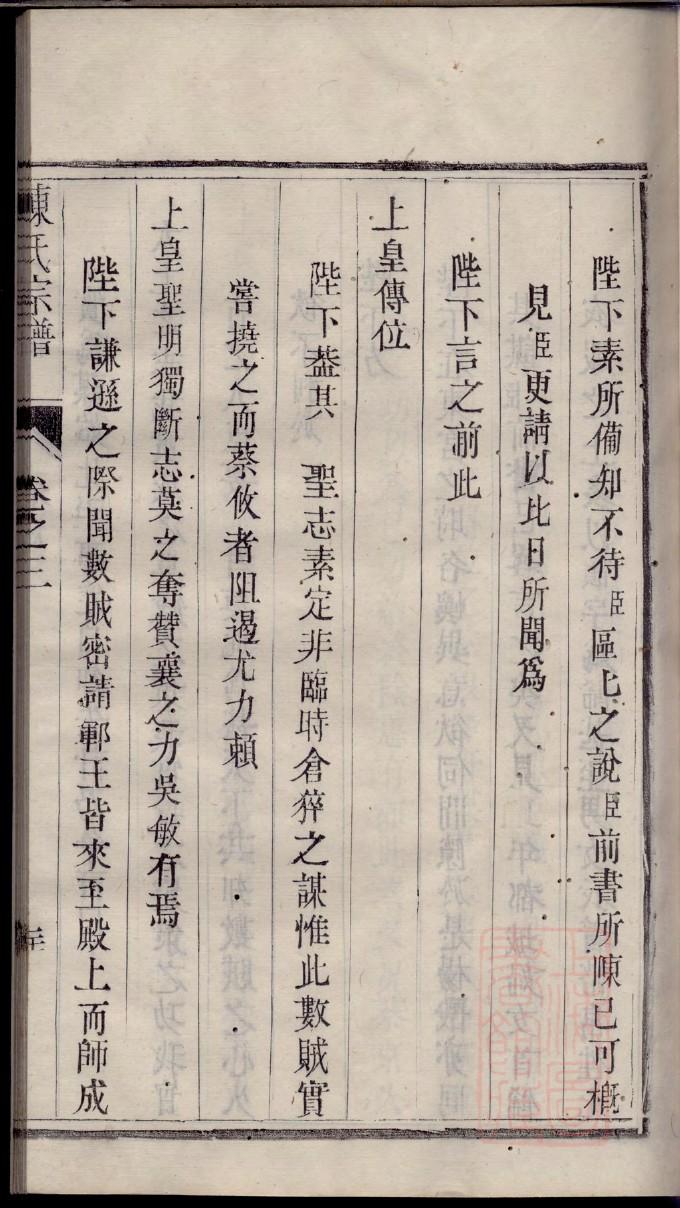 陛下素所備知不待臣區匕之說臣前書所陳已可槪
見臣更請以比日所聞爲
陛下言之前此
上皇傳位
陛下葢其　聖志素定非臨時倉猝之謀惟此數賊實
嘗撓之而蔡攸者阻遏尤力賴
上皇聖明獨斷志莫之奪贊襄之力吳敏有焉
陛下謙遜之際聞數賊密請鄆王皆來至殿上而師成
陳氏宗譜
卷之三